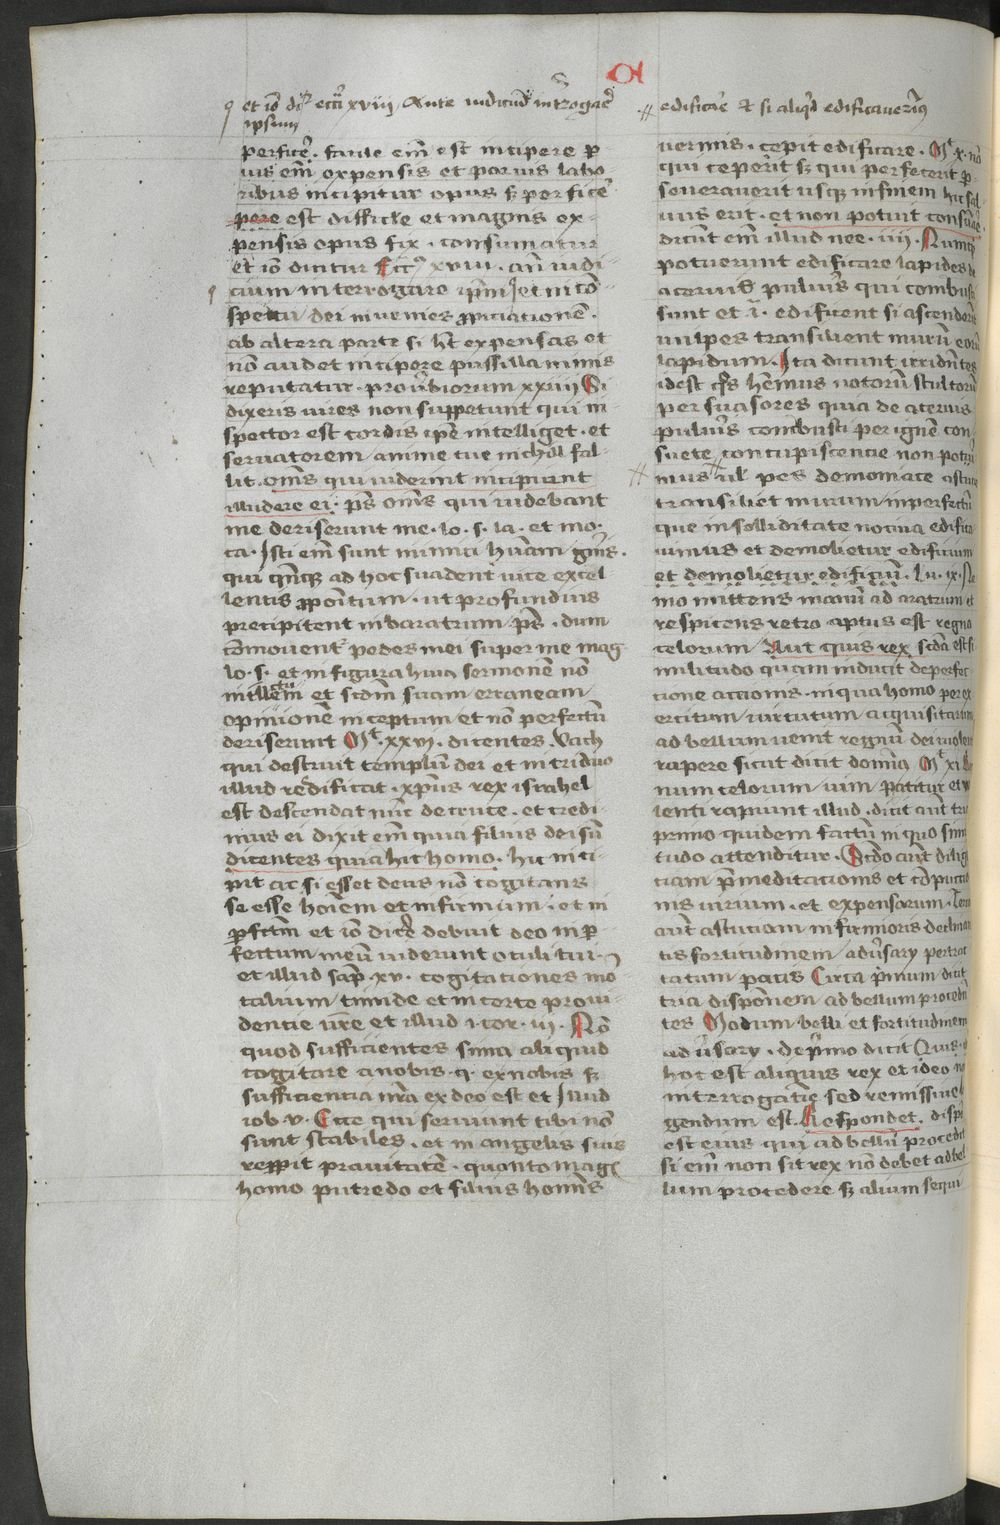 et iō dr̄ eccī xviij Ante iudiciū introgaē
ipsum
perficē. facile em̄ est incipere p
uis em̄ expensis et paruis labo
ribus incipitur opus sꝫ perficē
pere est difficile et magnis ex-
pensis opus fix. consumatur
et iō dicitur Ecc xviii. an̄ iudi
cium interrogare ipm̄ et in cō
spectu dei inuenies ꝓpiciationē.
ab altera parte si hēt expensas et
nō audet incipere pussillanimis
reputatur. prouerbiorum xxiiij Si
dixeris uires non suppetunt qui in
spector est cordis ipē intelliget. et
seruatorem anime tue nichil fal
lit. omēs qui uiderint incipiant
illudere ei. ps̄ omēs qui uidebant
me deriserunt me. lo. s. la. et mo.
ca. Isti em̄ sunt inimici humani gnīs.
qui qn̄qꝫ ad hoc suadent uite excel
lentis ꝓpoītum. ut profundius
precipitent in baratrum ps̄. dum
cōmouent pedes mei super me mag
lo. s. et in figura huiꝰ sermonē nō
intllcm̄ et scdm̄ suam erraneam
opinionē inceptum et nō perfectū
deriserunt Mt xxvij. dicentes. Vach
qui destruit templū dei et in triduo
illud redificat. xpūs rex israhel
est descendat nūc de cruce. et credi
mus ei dixit em̄ quia filius dei sū
dicentes quia hic homo. hic inci-
pit ac si esset deus nō cogitans
se esse hoīem et infirmum. et in
ꝑfcm̄ et iō dicē debuit deo inꝑ
fectum meū uiderunt oculi tui.
et illud sap̄ xv. cogitationes mo
talium timide et incerte proui
dentie nr̄e et illud i. cor. iij. Nō
quod sufficientes simꝰ aliquid
cogitare a nobis. q. ex nobis sꝫ
sufficiencia nr̄a ex deo est et Illud
iob v. Ecce qui seruiunt tibi nō
sunt stabiles. et in angelis suis
reppit prauitatē. quanto magꝭ
homo putredo et filius homīs
edificare et si aliqd edificauerimꝰ
uermis. cepit edificare. Mt x. nō
qui ceperit sꝫ qui perfecerit p
seuerauerit usqꝫ in finem hic sal
uus erit. et non potuit consūare.
dicūt em̄ illud nee. iiij. Numqd
potuerunt edificare lapides de
aceruis pulueris qui combusti
sunt et i. edificent si ascenderit
uulpes transiliet murū eorū
lapidum. Ita dicunt irridentes
idest cs̄ hēmus uotorū stultorū
persuasores quia de aceruis
pulueris combusti per ignē con
suete concupiscencie non potuī
mus ul pes demoniace astucie
transiliet murum inperfectū
que in solliditate nociua edifica
uimus et demolietur edificium
et demolietur edificiū. lu. ix. Ne
mo mittens manū ad aratrum et
respiciens retro aptus est regno
celorum Aut quis rex scda est si
militudo quam inducit de perfec
tione actionis. in qua homo per ex
ercitum uirtutum acquisitarum
ad bellum uenit regnū dei uiolent
rapere sicut dicit dominꝰ Mt xi.
num celorum uim patitur et uio
lenti rapiunt illud. dicit aut̄ tria
primo quidem factū in quo simi
tudo attenditur. Secdo aut̄ dilig
ciam p̄meditacionis et
nis uirium. et expensarum. Tercio
aut̄ astuciam infirmioris declinan
tis fortitudinem aduersary pertrac
tatum pacis Circa primum dicit
tria disponem ad bellum proceden
tes Modum belli et fortitudinem
aduersary. de primo dicit Quis.
hoc est aliquis rex et ideo non
interrogatiue sed remissiue
gendum est. Respondet. dispo
est eius qui ad bellū procedit
si em̄ non sit rex nō debet ad bel
lum procedere sꝫ alium sequi